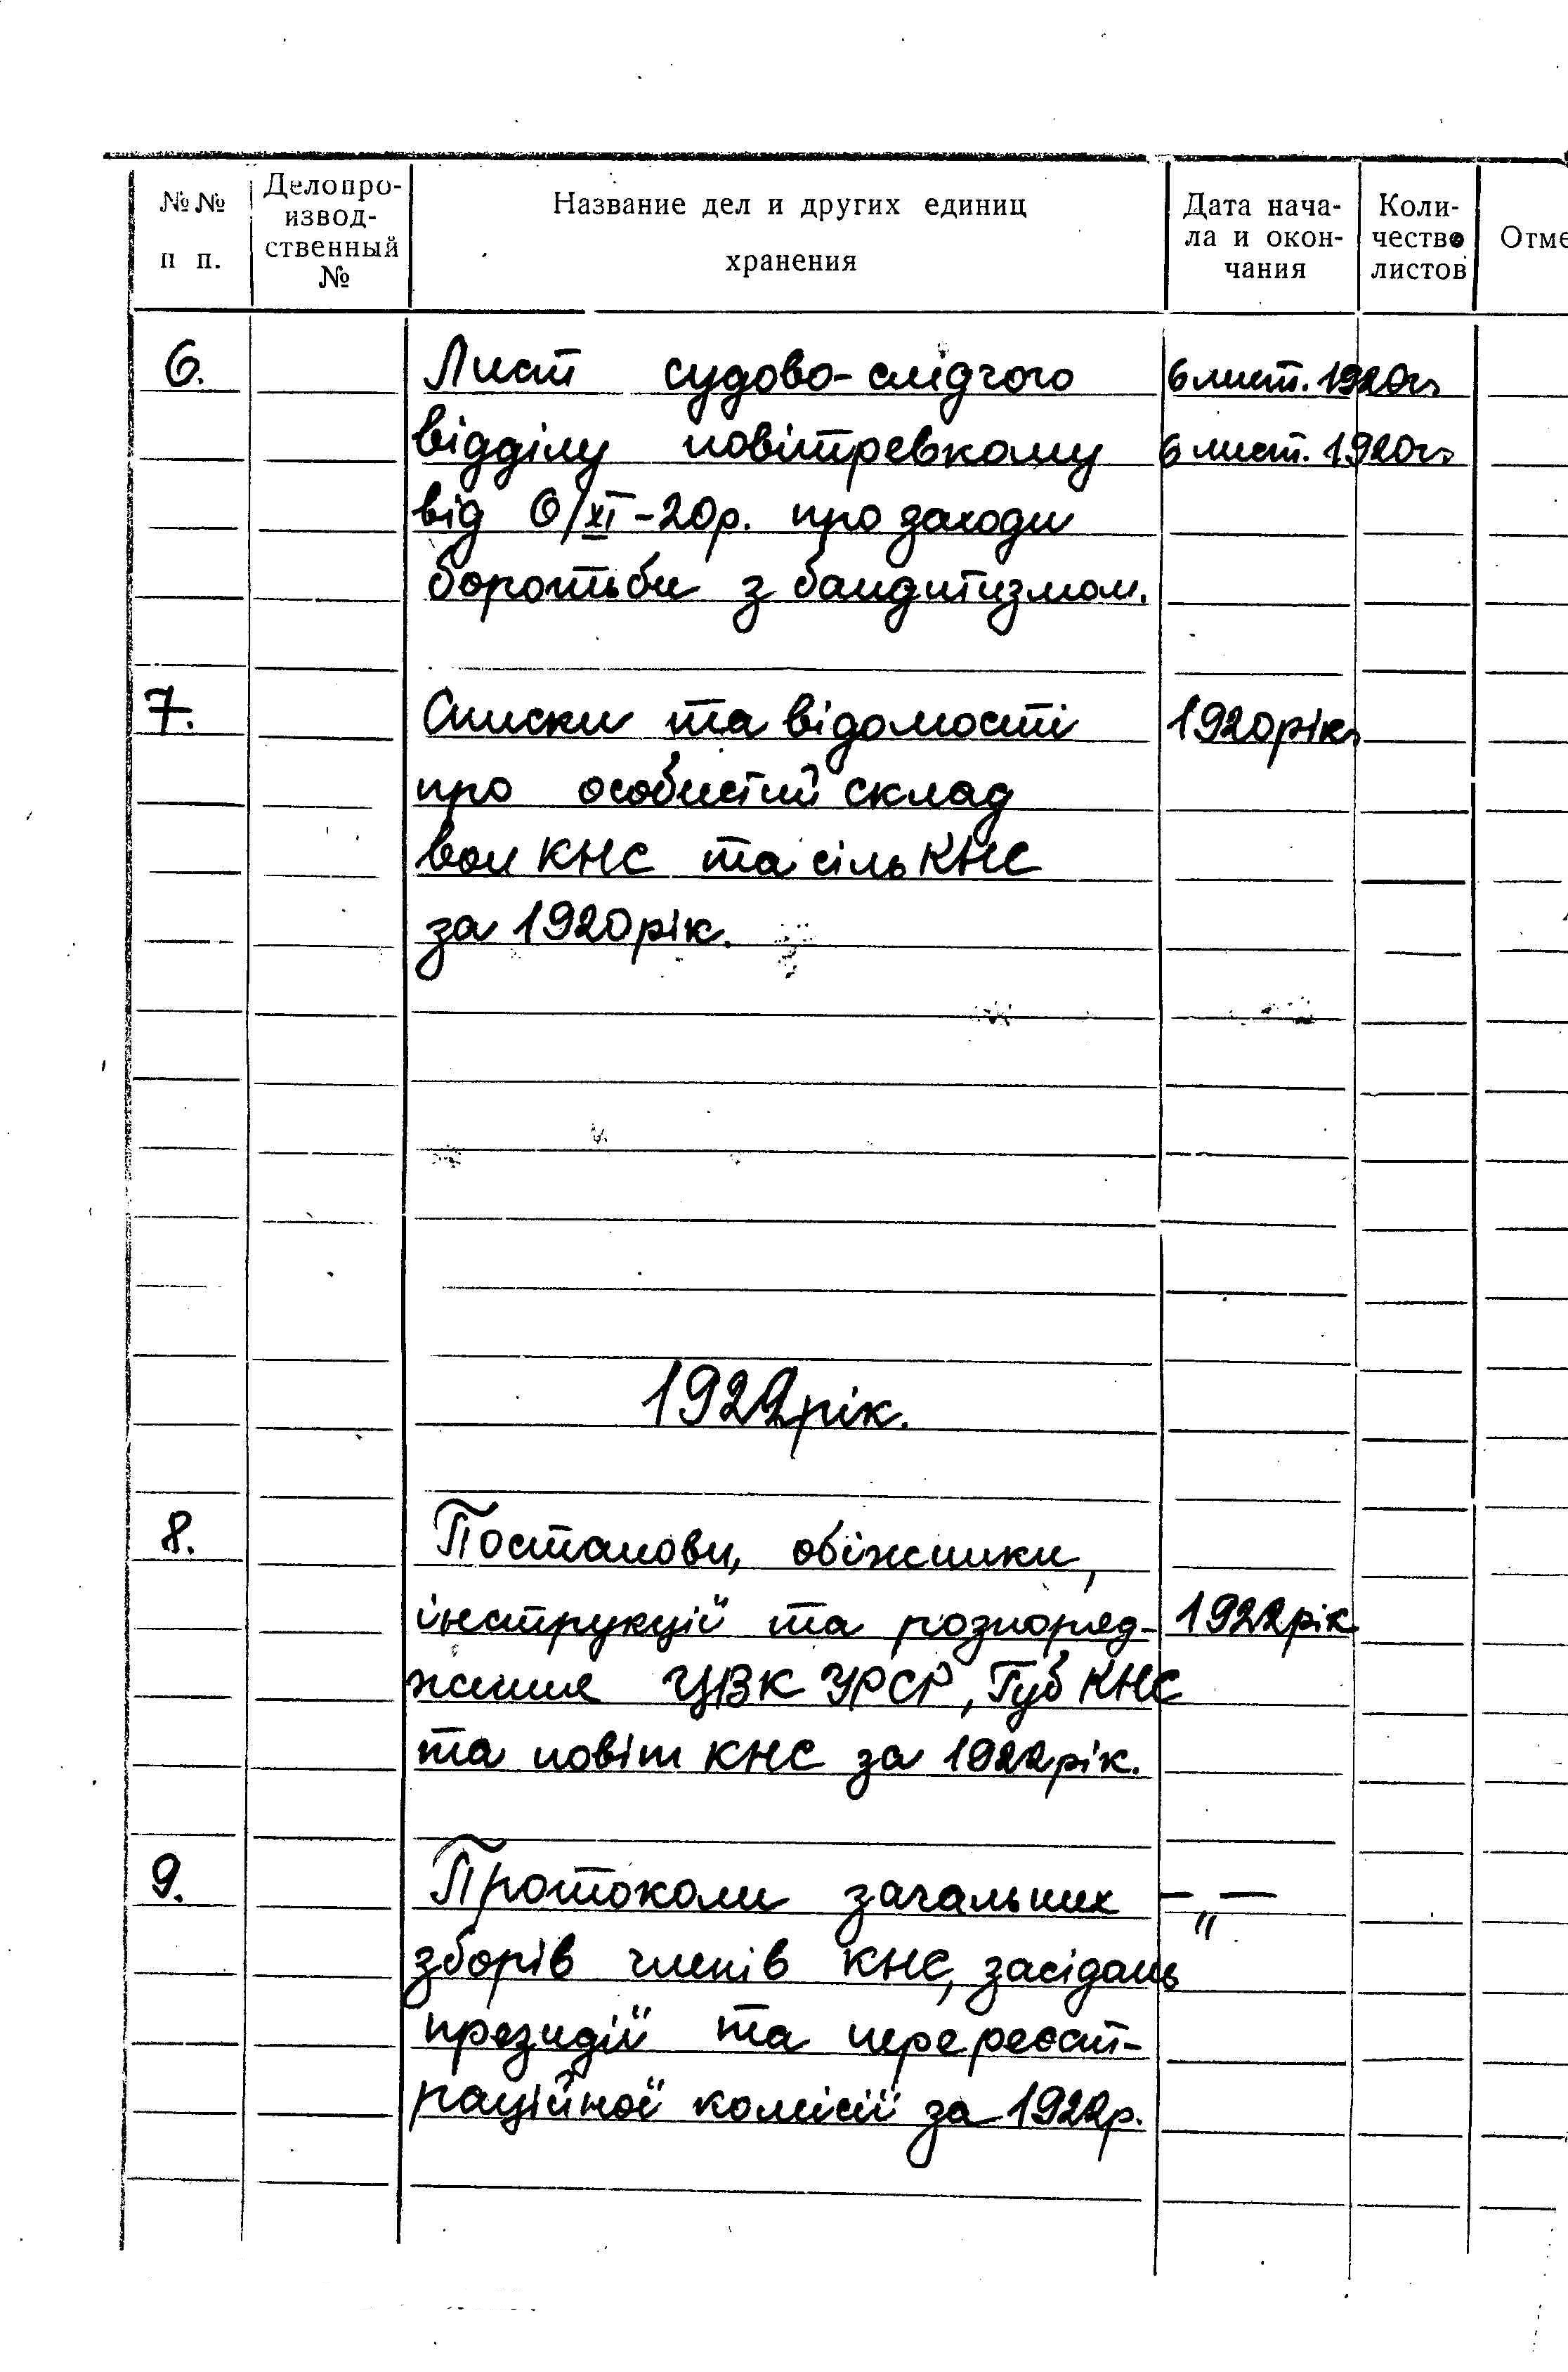 №№ п п.
Делопро-
извод-
ственный
№
Название дел и других единиц
хранения
Дата нача-
ла и окон-
чания
Коли-
чество
листов
Отме
6. Лист судово-слідчого 6 лист. 1920
відділу повітревкому 6 лист. 1920
від 6/XI-20р. про заходи
боротьби з бандитизмом.
7. Списки та відомості 1920рік
про особистий склад
вол КНС та сіль КНС
за 1920рік.
1922рік.
8. Постанови, обіжники,
інструкції та розпоряд- 1922рік
ження ЦВК УРСР, Губ КНС
та повіт КНС за 1922рік.
9. Протоколи загальних —"—
зборів членів КНС, засідань
президії та перереєст-
раційної комісії за 1922р.